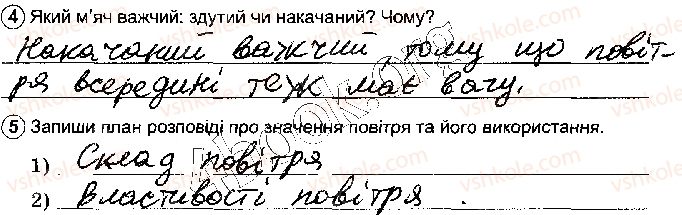 4 Який м'яч важчий: здутий чи накачаний? Чому?
Накачаний важчий тому що повіт-
ря всередині теж має вагу.
5 Запиши план розповіді про значення повітря та його використання.
1) Склад повітря
2) Властивості повітря.